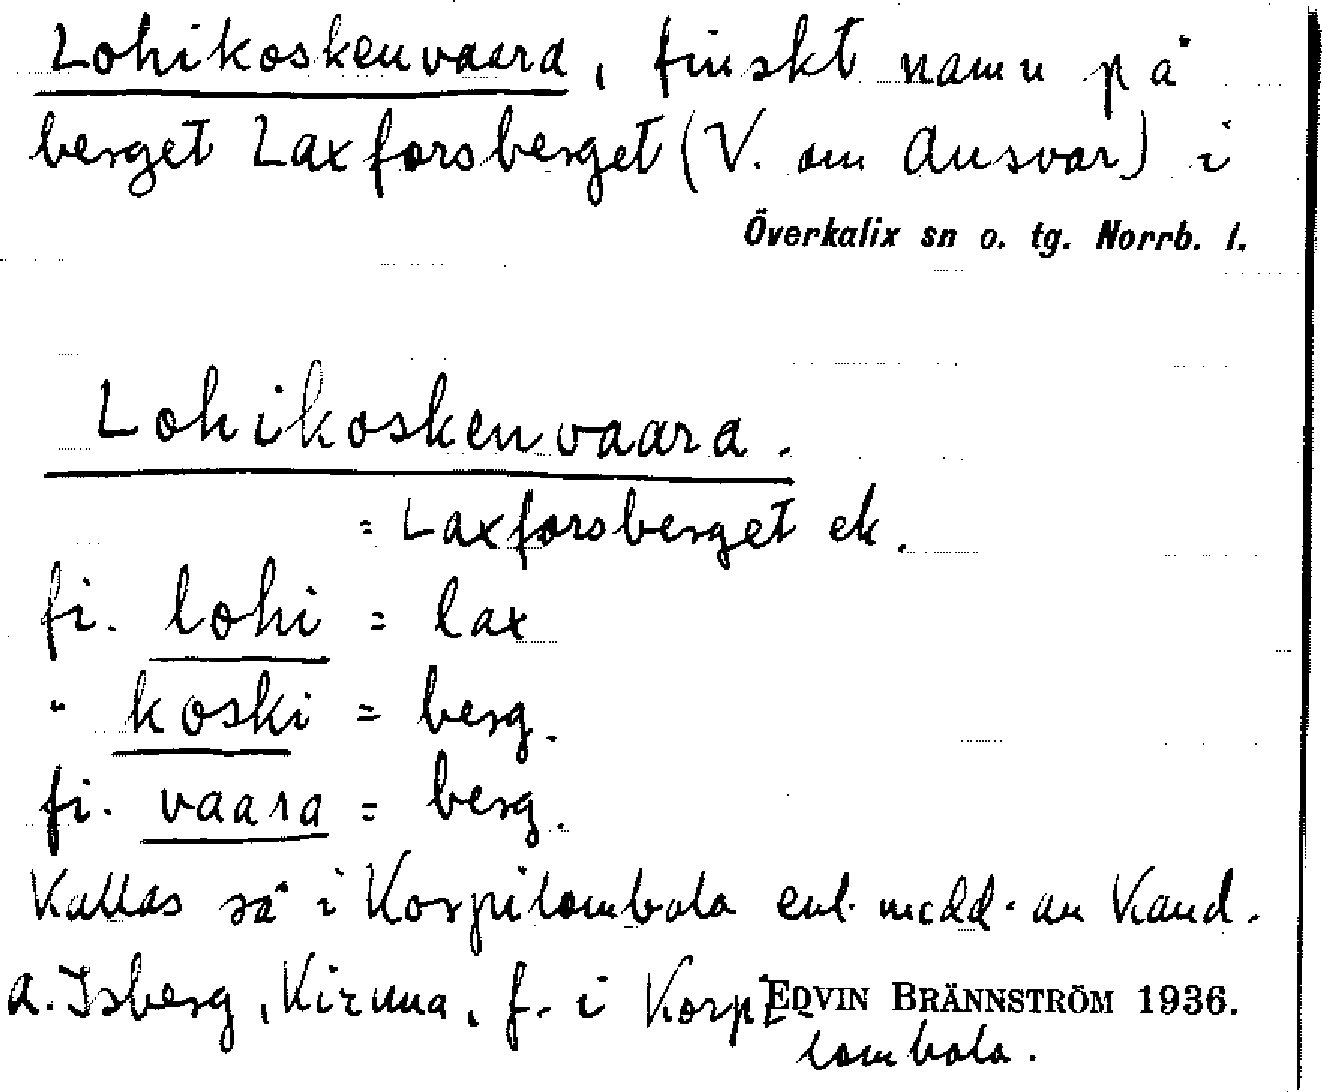 Lohikoskenvaara, finskt namn på
berget Laxforsberget (V. om Ansvar) i
Överkalix sn o. tg. Norrb. l.
Lohikoskenvaara.
= Laxforsberget ek.
fi. lohi = lax
" koski = berg.
fi. vaara = berg.
Kallas så i Korpilombolo enl. medd. av Kand.
A. Isberg, Kiruna, f. i Korpi
EDVIN BRÄNNSTRÖM 1936.
lombolo.